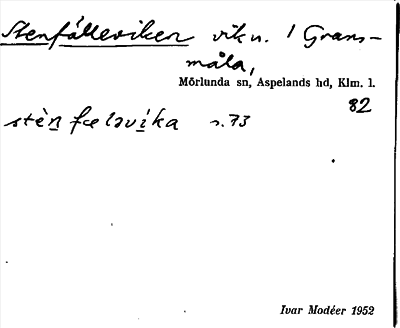 Stenfälleviken vik n. i Grans-
måla,
Mörlunda sn, Aspelands hd, Klm. l.
82
stèn fælavíka s. 73
Ivar Modéer 1952